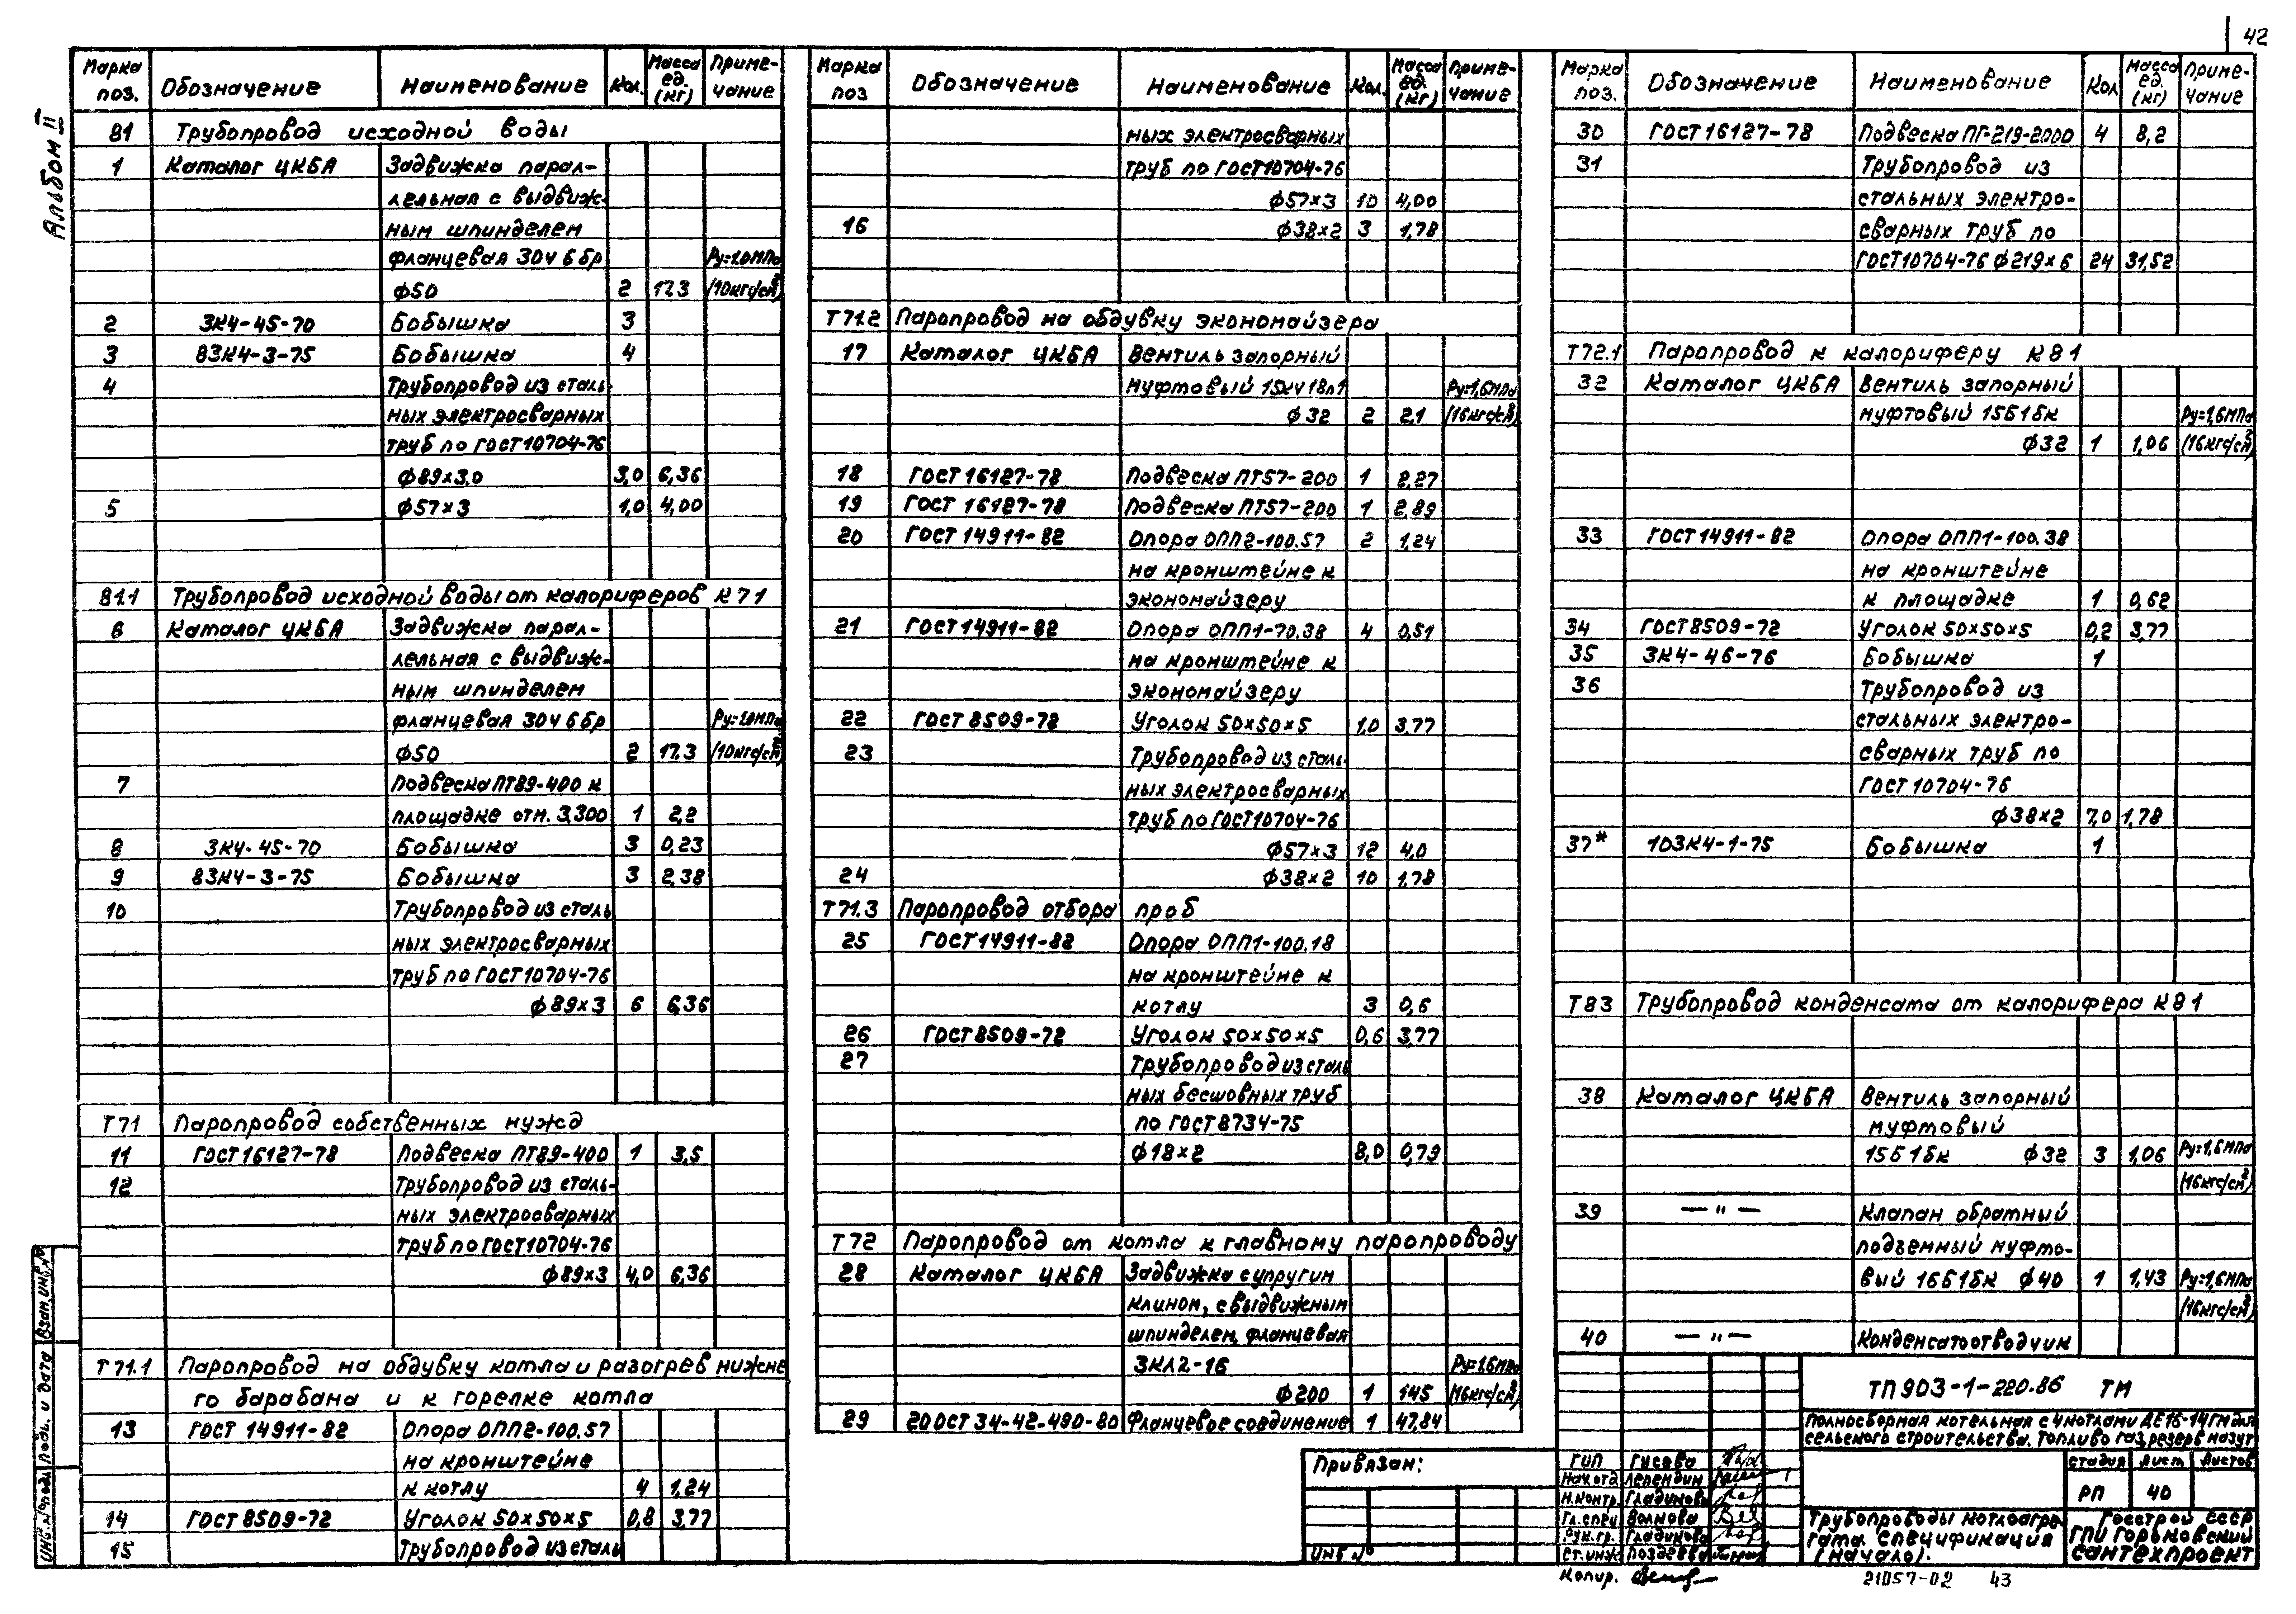 42
Альбом II
Марка поз. Обозначение Наименование Кол. Масса ед. (кг) Примечание
В1 Трубопровод исходной воды
1 Каталог ЦКБА Задвижка парал-
лельная с выдвиж-
ным шпинделем
фланцевая 30ч6бр Ру=1.0МПа
ф50 2 17.3 (10кгс/см²)
2 ЗК4-45-70 Бобышка 3
3 83К4-3-75 Бобышка 4
4 Трубопровод из сталь
ных электросварных
труб по ГОСТ10704-76
ф89×3,0 3,0 6,36
5 ф57×3 1,0 4,00
В1.1 Трубопровод исходной воды от калориферов К71
6 Каталог ЦКБА Задвижка парал-
лельная с выдвиж-
ным шпинделем
фланцевая 30ч6бр Ру=1.0МПа
ф50 2 17.3 (10кгс/см²)
7 Подвеска ПТ89-400 к
площадке отм. 3,300 1 2,2
8 ЗК4-45-70 Бобышка 3 0,23
9 83К4-3-75 Бобышка 3 2,38
10 Трубопровод из сталь
ных электросварных
труб по ГОСТ10704-76
ф89×3 6 6,36
Т71 Паропровод собственных нужд
11 ГОСТ16127-78 Подвеска ПТ89-400 1 3,5
12 Трубопровод из сталь-
ных электросварных
труб по ГОСТ10704-76
ф89×3 4,0 6,36
Т71.1 Паропровод на обдувку котла и разогрев нижне
го барабана и к горелке котла
13 ГОСТ 14911-82 Опора ОПП2-100.57
на кронштейне
к котлу 4 1,24
14 ГОСТ 8509-72 Уголок 50×50×5 0,8 3,77
15 Трубопровод из сталь
Марка поз Обозначение Наименование Кол. Масса ед. (кг) Примечание
ных электросварных
труб по ГОСТ10704-76
ф57×3 10 4,00
16 ф38×2 3 1,78
Т71.2 Паропровод на обдувку экономайзера
17 Каталог ЦКБА Вентиль запорный
муфтовый 15кч18п1 Ру=1,6МПа
ф32 2 2,1 (16кгс/см²)
18 ГОСТ 16127-78 Подвеска ПТ57-200 1 2,27
19 ГОСТ 16127-78 Подвеска ПТ57-200 1 2,89
20 ГОСТ 14911-82 Опора ОПП2-100.57 2 1,24
на кронштейне к
экономайзеру
21 ГОСТ 14911-82 Опора ОПП1-70.38 4 0,51
на кронштейне к
экономайзеру
22 ГОСТ 8509-72 Уголок 50×50×5 1,0 3,77
23 Трубопровод из сталь
ных электросварных
труб по ГОСТ10704-76
ф57×3 12 4,0
24 ф38×2 10 1,78
Т71.3 Паропровод отбора проб
25 ГОСТ14911-82 Опора ОПП1-100.18
на кронштейне к
котлу 3 0,6
26 ГОСТ8509-72 Уголок 50×50×5 0,6 3,77
27 Трубопровод из сталь
ных бесшовных труб
по ГОСТ8734-75
ф18×2 8,0 0,79
Т72 Паропровод от котла к главному паропроводу
28 Каталог ЦКБА Задвижка с упругим
клином, с выдвижным
шпинделем, фланцевая
ЗКЛ2-16 Ру=1,6МПа
ф200 1 145 (16кгс/см²)
29 20 ОСТ 34-42-490-80 Фланцевое соединение 1 47,84
Марка поз. Обозначение Наименование Кол Масса ед. (кг) Примечание
30 ГОСТ16127-78 Подвеска ПГ-219-2000 4 8,2
31 Трубопровод из
стальных электро-
сварных труб по
ГОСТ10704-76 ф219×6 24 31,52
Т72.1 Паропровод к калориферу К81
32 Каталог ЦКБА Вентиль запорный
муфтовый 15Б1бк Ру=1,6МПа
ф32 1 1,06 (16кгс/см²)
33 ГОСТ14911-82 Опора ОПП1-100.38
на кронштейне
к площадке 1 0,62
34 ГОСТ8509-72 Уголок 50×50×5 0,2 3,77
35 ЗК4-46-76 Бобышка 1
36 Трубопровод из
стальных электро-
сварных труб по
ГОСТ10704-76
ф38×2 7,0 1,78
37* 103К4-1-75 Бобышка 1
Т83 Трубопровод конденсата от калорифера К81
38 Каталог ЦКБА Вентиль запорный
муфтовый
15Б1бк ф32 3 1,06 Ру=1,6МПа
(16кгс/см²)
39 — " — Клапан обратный
подъемный муфто-
вый 16Б1бк ф40 1 1,43 Ру=1,6МПа
(16кгс/см²)
40 — " — Конденсатоотводчик
ТП 903-1-220.86 ТМ
Полносборная котельная с 4 котлами ДЕ16-14ГМ для
сельского строительства. Топливо газ, резерв мазут
Стадия Лист Листов
РП 40
Трубопроводы котлоагре
гата. Спецификация
(начало).
Госстрой СССР
ГПИ Горьковский
Сантехпроект
Привязан:
Инв №
ГИП Гусева
Нач.отд Лерендин
Н.контр. Гладикова
Гл.спец Волкова
Рук.гр. Гладикова
Ст.инж Поздеева
Копир.
21057-02 43
Инв.№подл. Подп. и дата Взам.инв.№